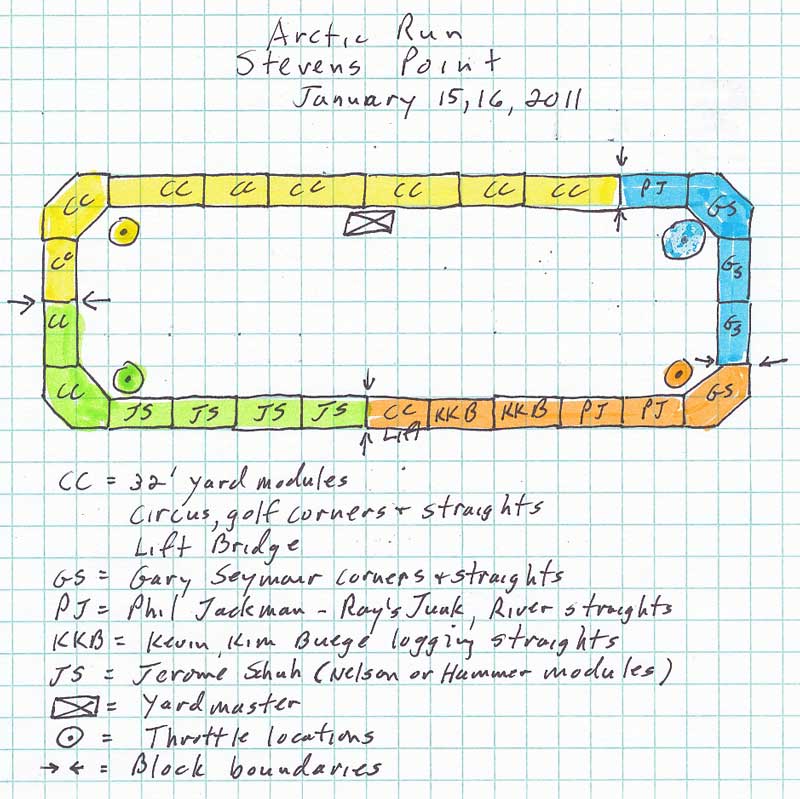 Arctic Run
Stevens Point
January 15, 16, 2011
CC CC CC CC CC CC CC PJ GS
CC GS
CC GS
CC JS JS JS JS CC KKB KKB PJ PJ GS
Lift
CC = 32' yard modules
Circus, golf corners + straights
Lift Bridge
GS = Gary Seymour corners + straights
PJ = Phil Jackman - Ray's Junk, River straights
KKB = Kevin, Kim Buege logging straights
JS = Jerome Schuh (Nelson or Hammer modules)
= Yardmaster
= Throttle locations
→ ← = Block boundaries